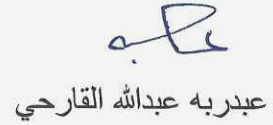 عبدربه عبدالله القارحي